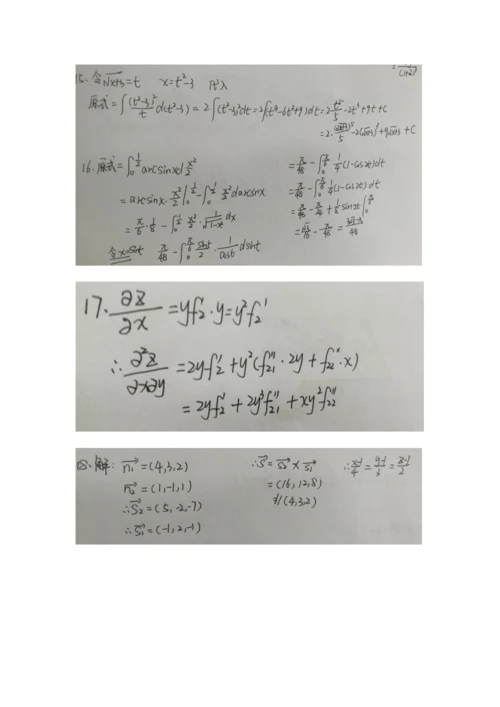 (1+2)
15. 令√x+3=t x=t²-3 代入
原式=∫(t²-3)²/t d(t²-3)=2∫(t²-3)²dt=2∫(t⁴-6t²+9)dt=2·t⁵/5-2t³+9t+C
16. 原式=∫₀^½ arcsinx d x²/2
=arcsinx·x²/2|₀^½-∫₀^½ x²/2 d arcsinx
=π/6·1/8-∫₀^½ x²/2·1/√1-x² dx
令x=sint π/48-∫₀^(π/6) sint/2·1/cost dsint
=π/48-∫₀^(π/6) 1/4(1-cos2t)dt
=π/48-∫₀^(π/6) 1/4(1-cos2t)dt
17. ∂z/∂x=yf₂'·y=y²f₂'
∴∂²z/∂x∂y=2yf₂'+y²(f₂₁''·2y+f₂₂''·x)
=2yf₂'+2y³f₂₁''+xy²f₂₂''
18. 解: n₁=(4,3,2)
n₂=(1,-1,1)
∴S₂=(5,-2,-7)
∴S₁=(-1,2,-1)
∴S=S₂×S₁
=(16,12,8)
∥(4,3,2)
∴x-1/4=y-1/3=z-1/2